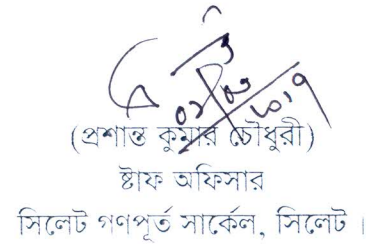 (প্রশান্ত কুমার চৌধুরী)
ষ্টাফ অফিসার
সিলেট গণপূর্ত সার্কেল, সিলেট ।